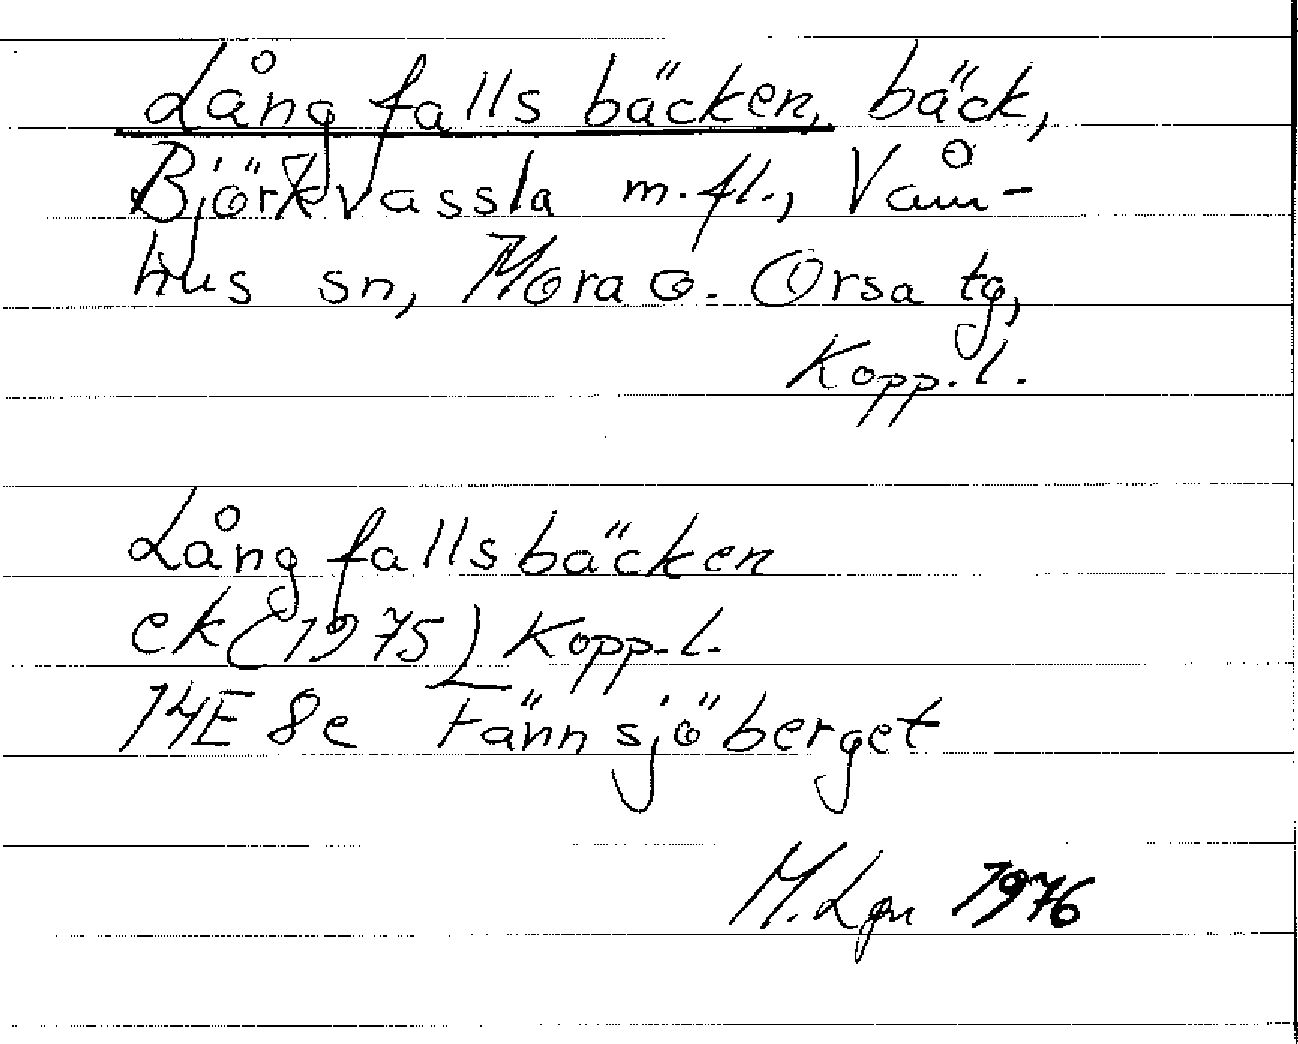 Långfallsbäcken, bäck,
Björkvassla m.fl., Våm-
hus sn, Mora o. Orsa tg,
Kopp. l.
Långfallsbäcken
ek (1975) Kopp. l.
14E 8e Fännsjöberget
M. Lgn 1976